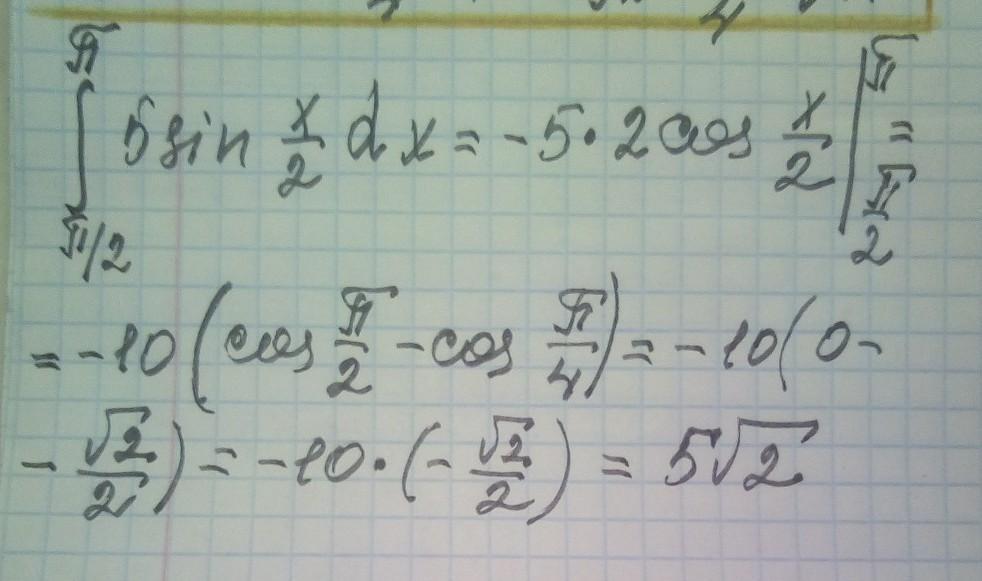 ∫_{π/2}^{π} 5 sin x/2 dx = -5·2 cos x/2 |_{π/2}^{π} =
= -10 (cos π/2 - cos π/4) = -10 (0 -
- √2/2) = -10·(-√2/2) = 5√2